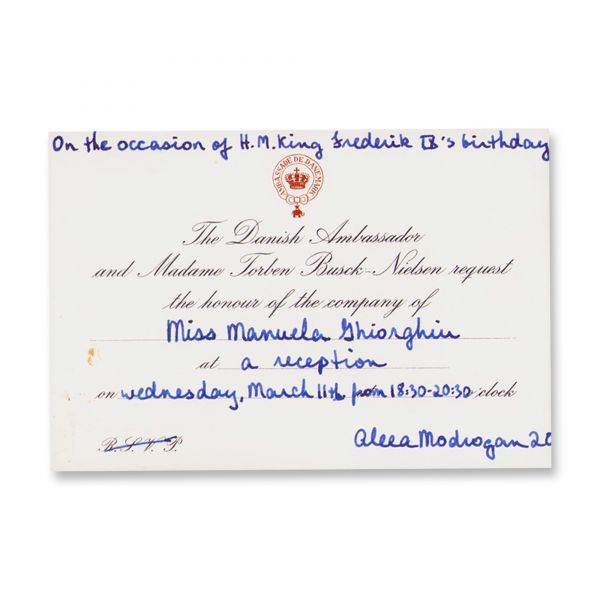 On the occasion of H.M. King Frederik IX's birthday
AMBASSADE DE DANEMARK
The Danish Ambassador
and Madame Torben Busck-Nielsen request
the honour of the company of
Miss Manuela Ghiorghiu
at a reception
on wednesday, March 11th from 18:30-20:30 o'clock
R.S.V.P.
Aleea Modrogan 20